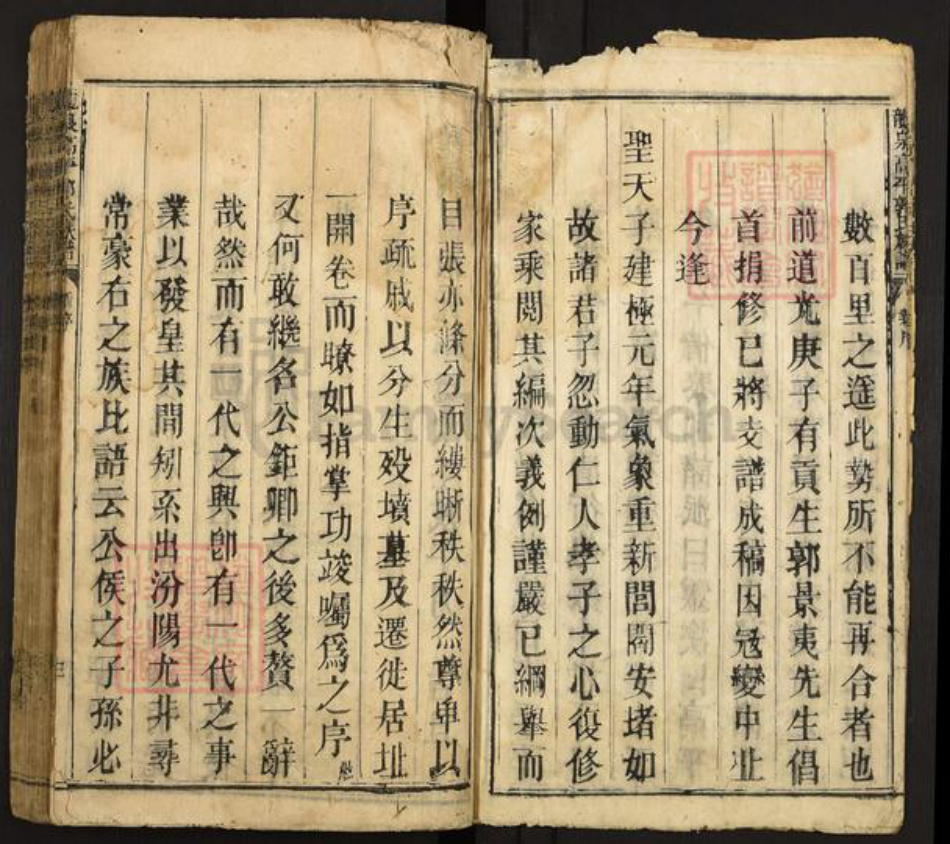 數百里之遥此勢所不能再合者也
前道光庚子有貢生郭景夷先生倡
首捐修已將支譜成稿因冦變中止
今逢
聖天子建極元年氣象重新閭閻安堵如
故諸君子忽動仁人孝子之心復修
家乘閱其編次義例謹嚴已綱舉而
目張亦滌分而縷晰秩秩然尊卑以
序疏戚以分生殁墳墓及遷徙居址
一開卷而瞭如指掌功竣囑爲之序
又何敢繼名公鉅卿之後多贅一辭
哉然而有一代之興卽有一代之事
業以發皇其間矧系出汾陽尤非尋
常豪右之族比語云公侯之子孫必